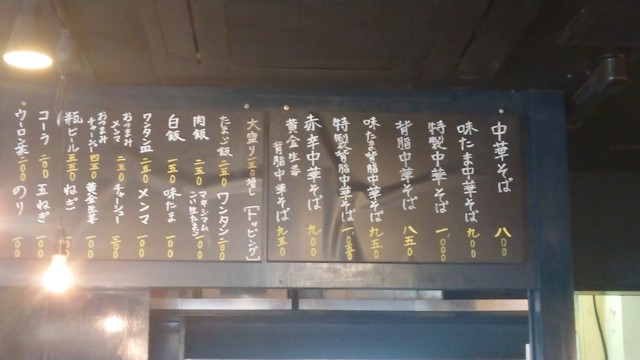 中華そば 八〇〇
味たま中華そば 九〇〇
特製中華そば 一、〇〇〇
背脂中華そば 八五〇
味たま背脂中華そば 九五〇
特製背脂中華そば 一、〇五〇
赤辛中華そば 九〇〇
黄金生姜背脂中華そば 九五〇
大盛り 一五〇増
[トッピング]
たまご飯 二五〇
ワンタン 二〇〇
肉飯 二五〇
白飯 一五〇
味たま 一〇〇
ワンタン皿 二五〇
メンマ 一〇〇
おつまみメンマ 二五〇
チャーシュー 二〇〇
おつまみチャーシュー 四五〇
黄金生姜 一〇〇
瓶ビール 五五〇
ねぎ 一〇〇
コーラ 二〇〇
玉ねぎ 一〇〇
ウーロン茶 二〇〇
のり 一〇〇